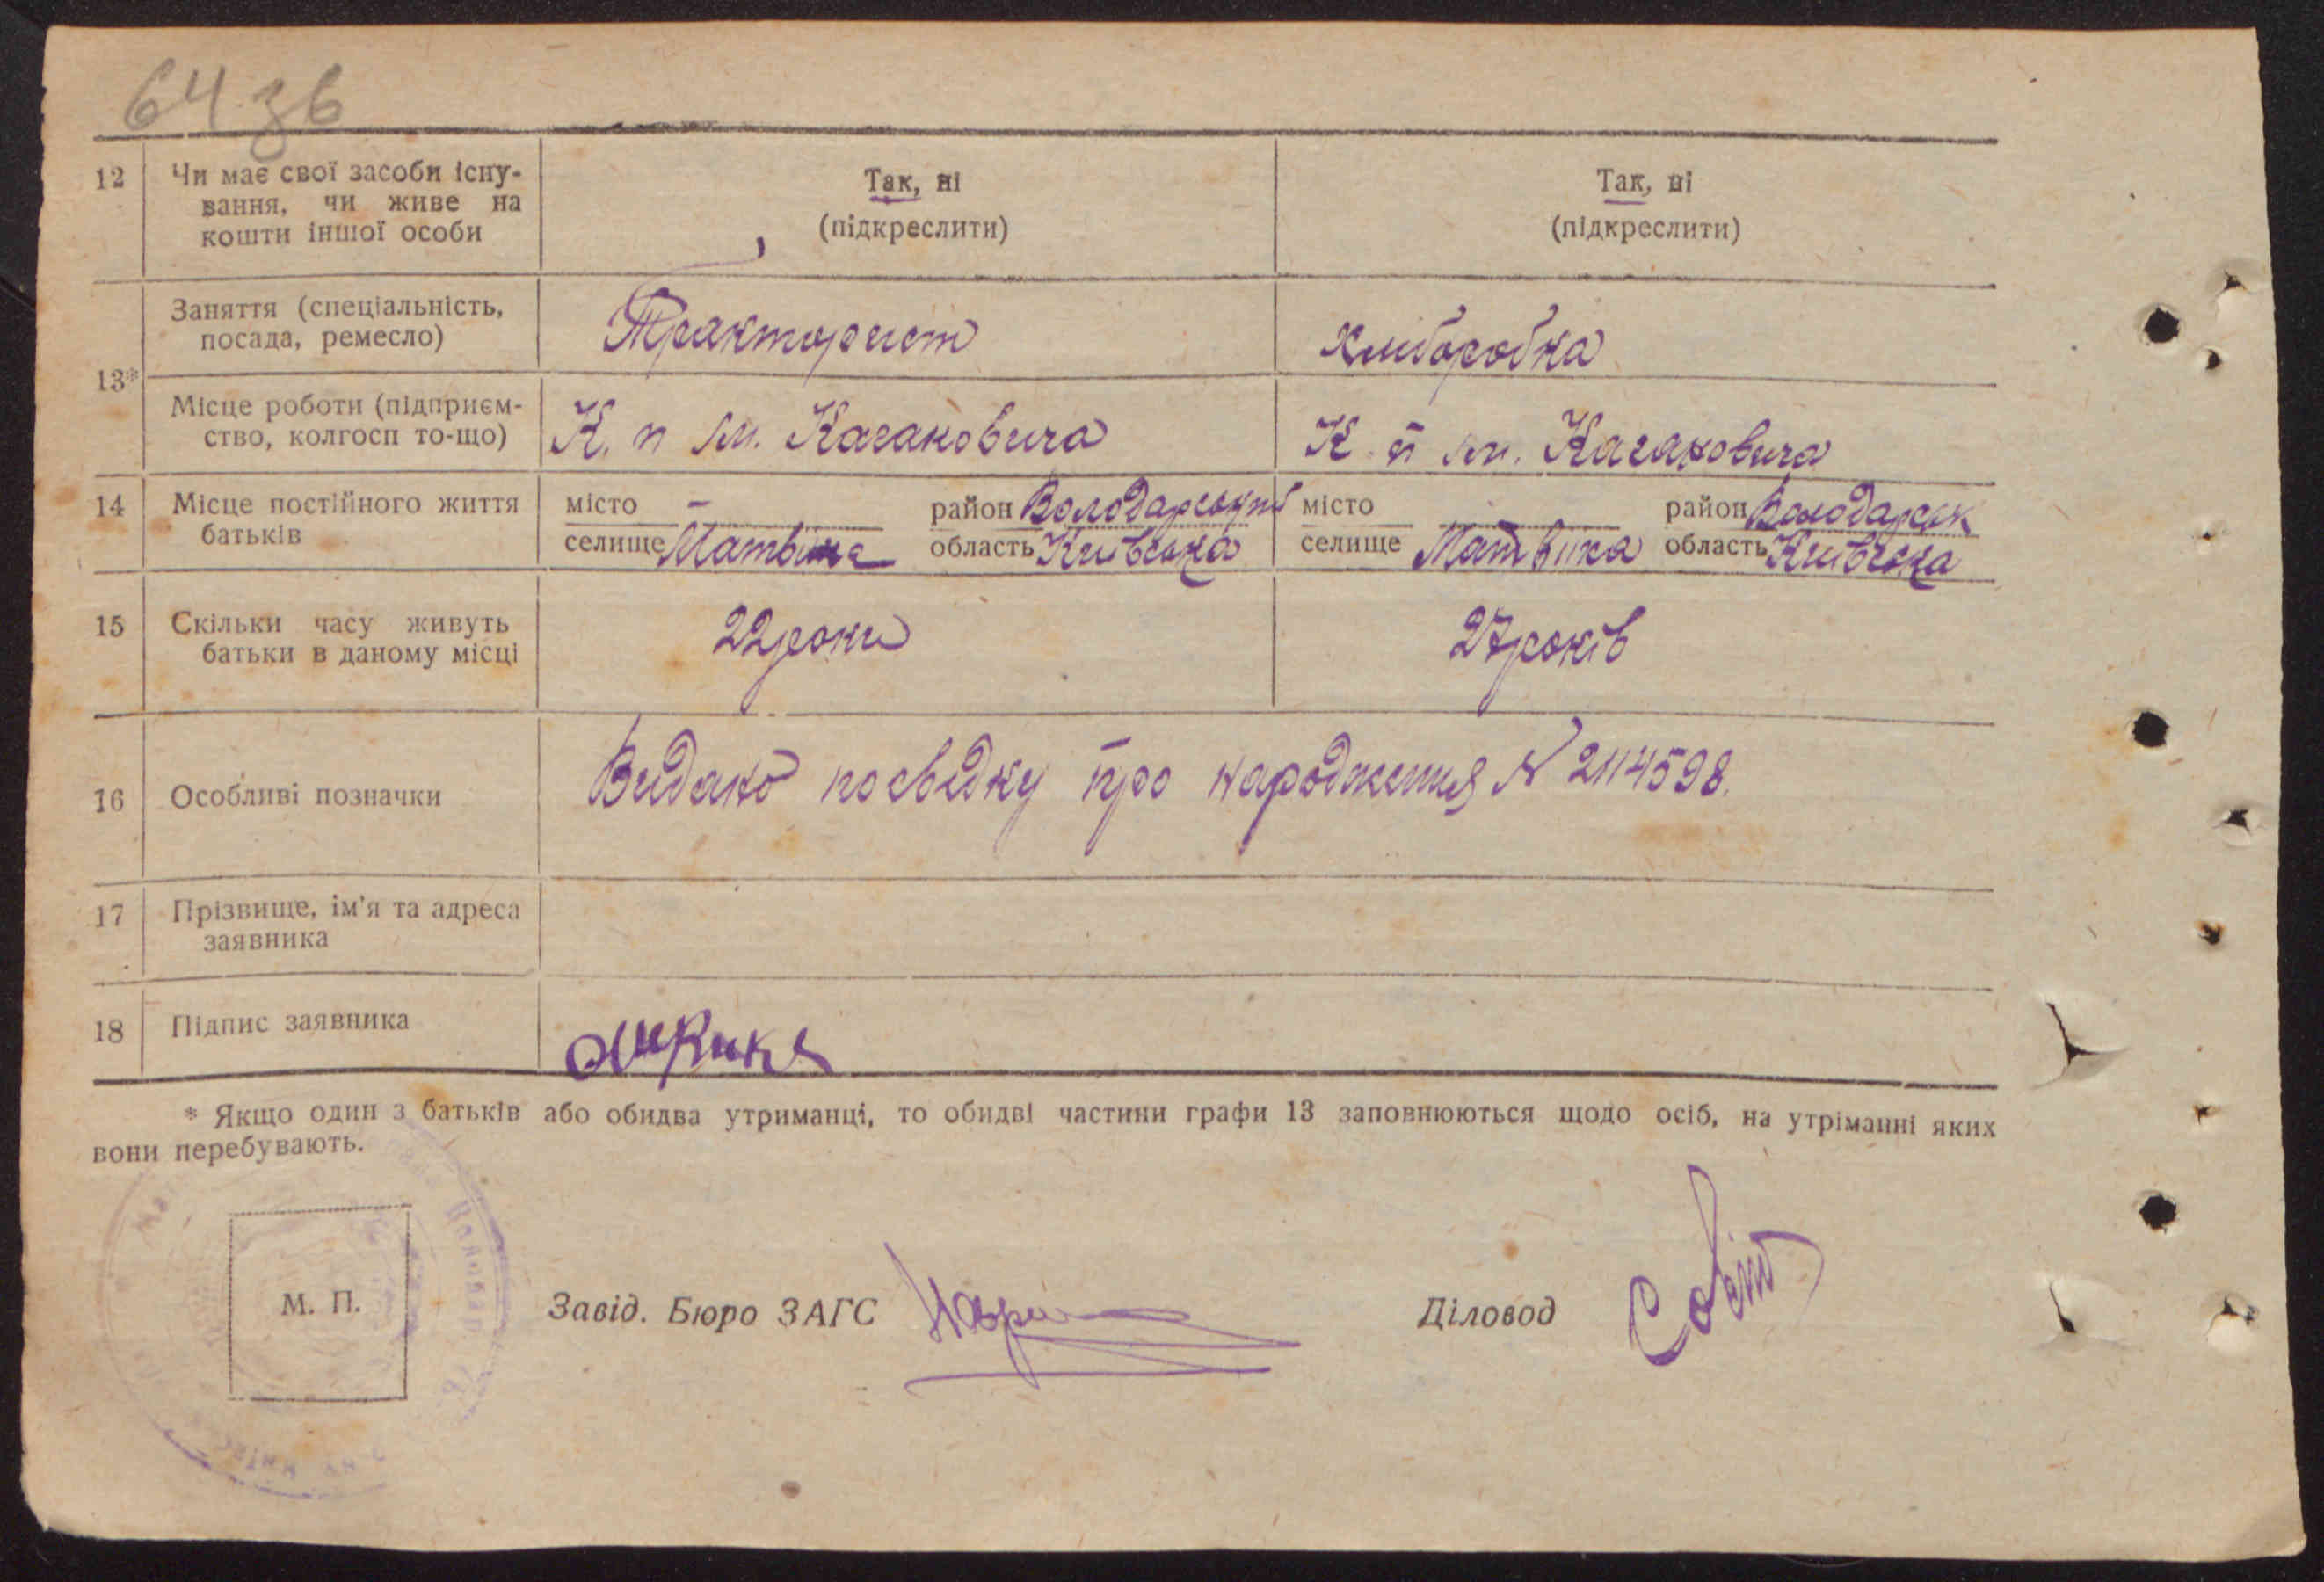 64 зв
12 Чи має свої засоби існу- Так, ні Так, ні
вання, чи живе на (підкреслити) (підкреслити)
кошти іншої особи
13* Заняття (спеціальність, Тракторист хліборобка
посада, ремесло)
Місце роботи (підприєм- К. п ім. Кагановича К. п ім. Кагановича
ство, колгосп то-що)
14 Місце постійного життя місто — район Володарський місто район Володарськ
батьків селище Матвіиха область Київська селище Матвиха область Київська
15 Скільки часу живуть 22 роки 27 років
батьки в даному місці
16 Особливі позначки Видано посвідку про народження N 2114598.
17 Прізвище, ім'я та адреса
заявника
18 Підпис заявника
* Якщо один з батьків або обидва утриманці, то обидві частини графи 13 заповнюються щодо осіб, на утріманні яких
вони перебувають.
М. П. Завід. Бюро ЗАГС Діловод